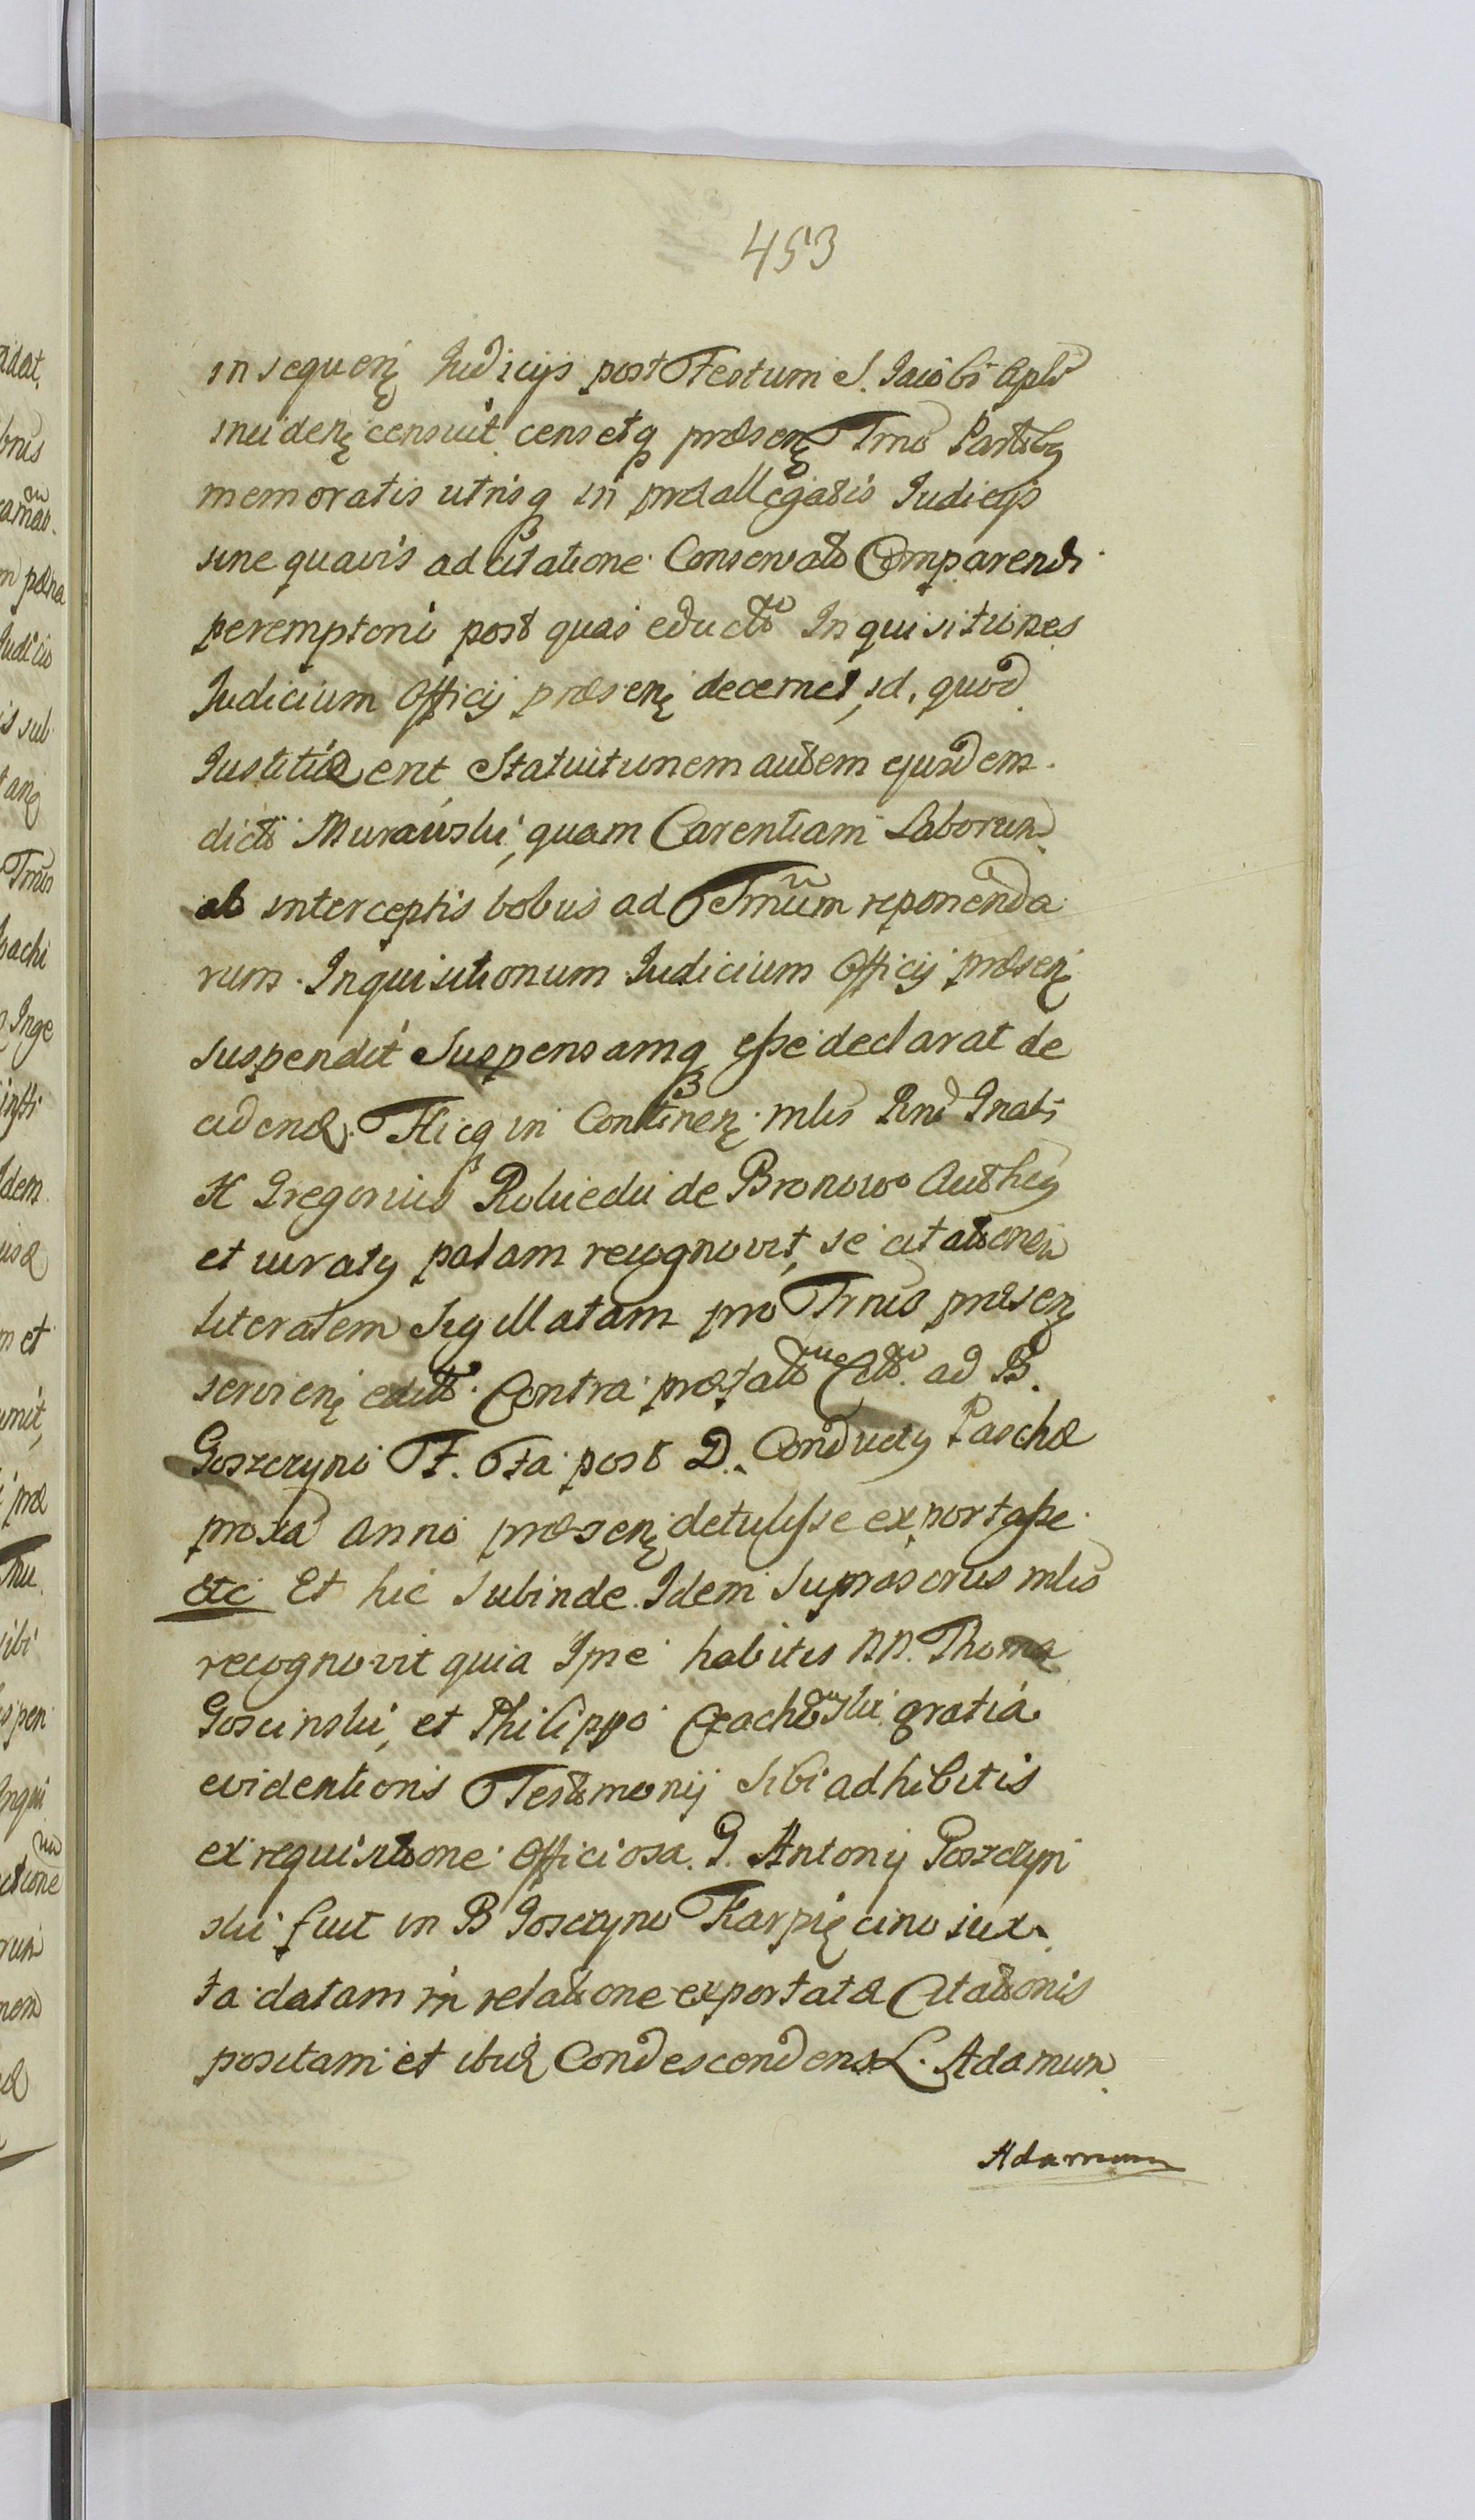 453
in sequenę Iudicijs post Festum S. Iacobi Apli
incidenę censuit censetq præsenę Tmo Partibq
memoratis utrisq in præallegatis Iudicijs
sine quavis adcitatione Conservato Comparendi
peremptorii post quas educto Inquisitiones
Iudicium Officij præsenę decernet, id, quod
Iustitiæ erit, Statuitionem autem ejusdem
dicti Murawski, quam Carentiam Laborum
ab interceptis bobus ad Tmum reponenda
rum Inquisitionum Iudicium Officij præsenę
suspendit Suspensamq eße declarat de
cidendæ. Hicq in Continenę mlis
H Gregorius de Bronowo Authenq
et iuratq palam recognovit, se citationem
literalem Sigillatam pro Tmis præsenę
servienę edito Contra præfato ad B.
Goszczyno F. 6ta post D. Conductq Paschæ
proxa anni præsenę detulisse exportaße
etc Et hic Subinde Idem Suprascrius mlis
recognovit quia Ipse habitis NN. Thoma
Goscinski, et Philippo gratiá
evidentioris Testimonij Sibi adhibitis
ex requisitione Officiosa G. Antonij Goszczyn
ski fuit in B Goszczyno Karpięcino iux
ta datam in relatione exportatæ Citationis
positam et ibiq Condescendens L. Adamum
Adamum
adat,
bnis
Iudicio
is sub
Tmis
bachi
Inge
Idem
m et
ibi
spen
Inqui